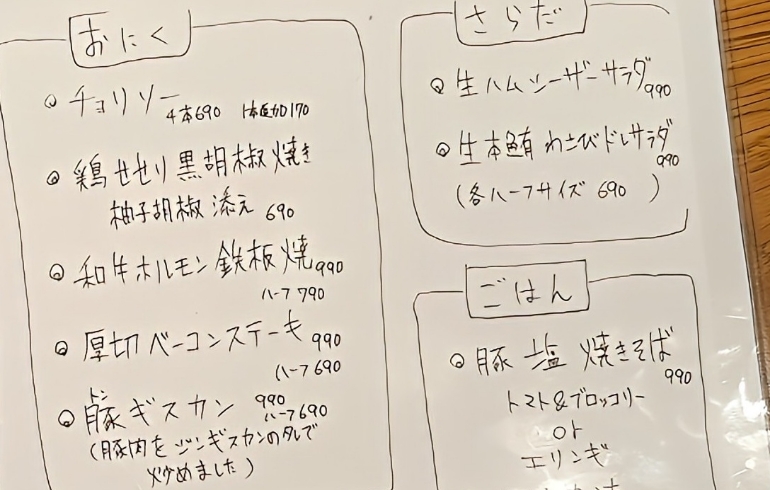 おにく
チョリソー
4本690 1本追加170
鶏せせり黒胡椒焼き
柚子胡椒添え 690
和牛ホルモン鉄板焼 990
ハーフ 790
厚切ベーコンステーキ 990
ハーフ 690
トン
豚ギスカン 990
ハーフ690
(豚肉をジンギスカンのタレで
炒めました)
さらだ
生ハムシーザーサラダ
990
生本鮪 わさびドレサラダ
990
(各ハーフサイズ 690 )
ごはん
豚 塩 焼きそば
990
トマト&ブロッコリー
or
エリンギ